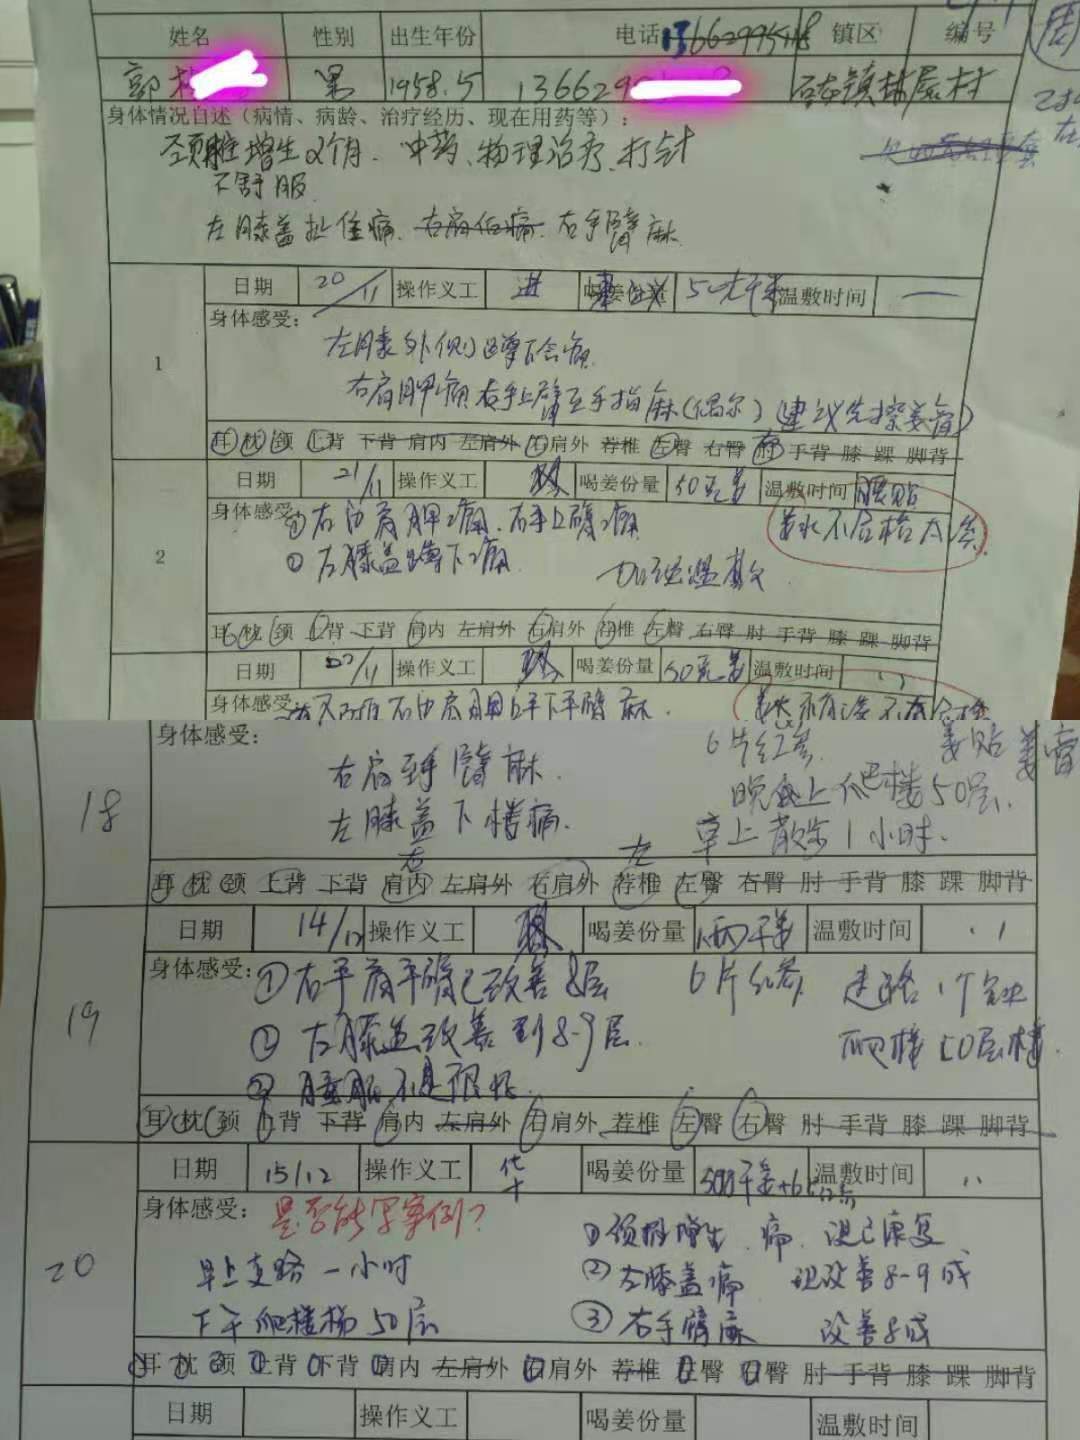 姓名 性别 出生年份 电话 镇区 编号
郭 男 1958.5 镇 村
身体情况自述（病情、病龄、治疗经历、现在用药等）：
颈椎增生2个月、中药、物理治疗、打针
不舒服
左膝盖 痛、右手臂麻
1 日期 20/11 操作义工 进 50克干姜 温敷时间 —
身体感受：
左膝外侧蹲下会痛
右肩胛痛右手上臂至手指麻(偶尔)(建议先擦姜膏)
耳 枕 颈 上背 下背 肩内 左肩外 右肩外 荐椎 左臀 右臀 肘 手背 膝 踝 脚背
2 日期 21/11 操作义工 喝姜份量 50克姜 温敷时间 腰贴
身体感受 ①右内肩胛痛、右手上臂痛 姜水不合格太淡
②左膝盖蹲下痛 加强温敷
耳 枕 颈 上背 下背 肩内 左肩外 右肩外 荐椎 左臀 右臀 肘 手背 膝 踝 脚背
日期 22/11 操作义工 喝姜份量 50克姜 温敷时间 、、
身体感受 右内肩胛 手臂麻
18 身体感受： 6片红参 姜贴 姜膏
右肩到手臂麻 晚饭上爬楼50层
左膝盖下楼痛 早上散步1小时
右 左
耳 枕 颈 上背 下背 肩内 左肩外 右肩外 荐椎 左臀 右臀 肘 手背 膝 踝 脚背
19 日期 14/12 操作义工 喝姜份量 1两干姜 温敷时间 、、
身体感受：①右手肩手臂已改善8层 6片红参 走路1个钟
②左膝盖改善到8-9层 爬楼50层楼
耳 枕 颈 上背 下背 肩内 左肩外 右肩外 荐椎 左臀 右臀 肘 手背 膝 踝 脚背
20 日期 15/12 操作义工 喝姜份量 干姜+6 温敷时间 、、
身体感受：是否能写案例? ①颈椎增生、痛、说已康复
早上走路一小时 ②左膝盖痛 现改善8-9成
下午爬楼梯50层 ③右手臂麻 改善8成
耳 枕 颈 上背 下背 肩内 左肩外 右肩外 荐椎 左臀 右臀 肘 手背 膝 踝 脚背
日期 操作义工 喝姜份量 温敷时间